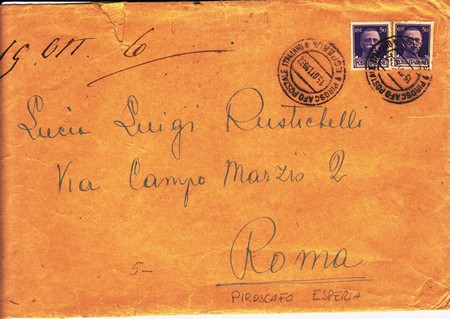 15 OTT 6
50 50
PIROSCAFO POSTALE ITALIANO
ESPERIA
Lucia Luigi Rustichelli
Via Campo Marzio 2
Roma
5-
PIROSCAFO ESPERIA